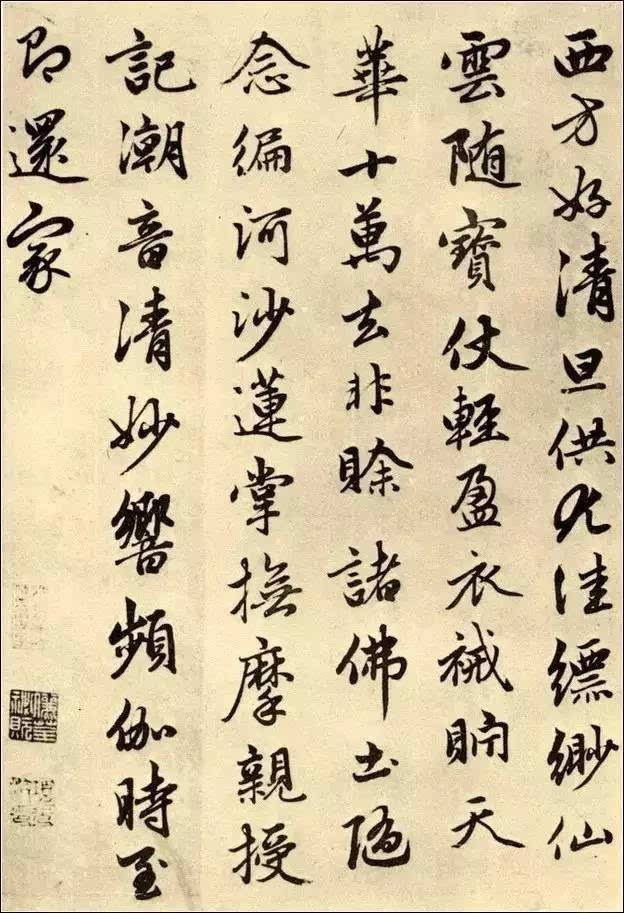 西方好清旦供尤佳縹緲仙
雲随寶仗輕盈衣祴貯天
華十萬去非賒諸佛土随
念編河沙蓮掌撫摩親授
記潮音清妙響頻伽時至
即還家